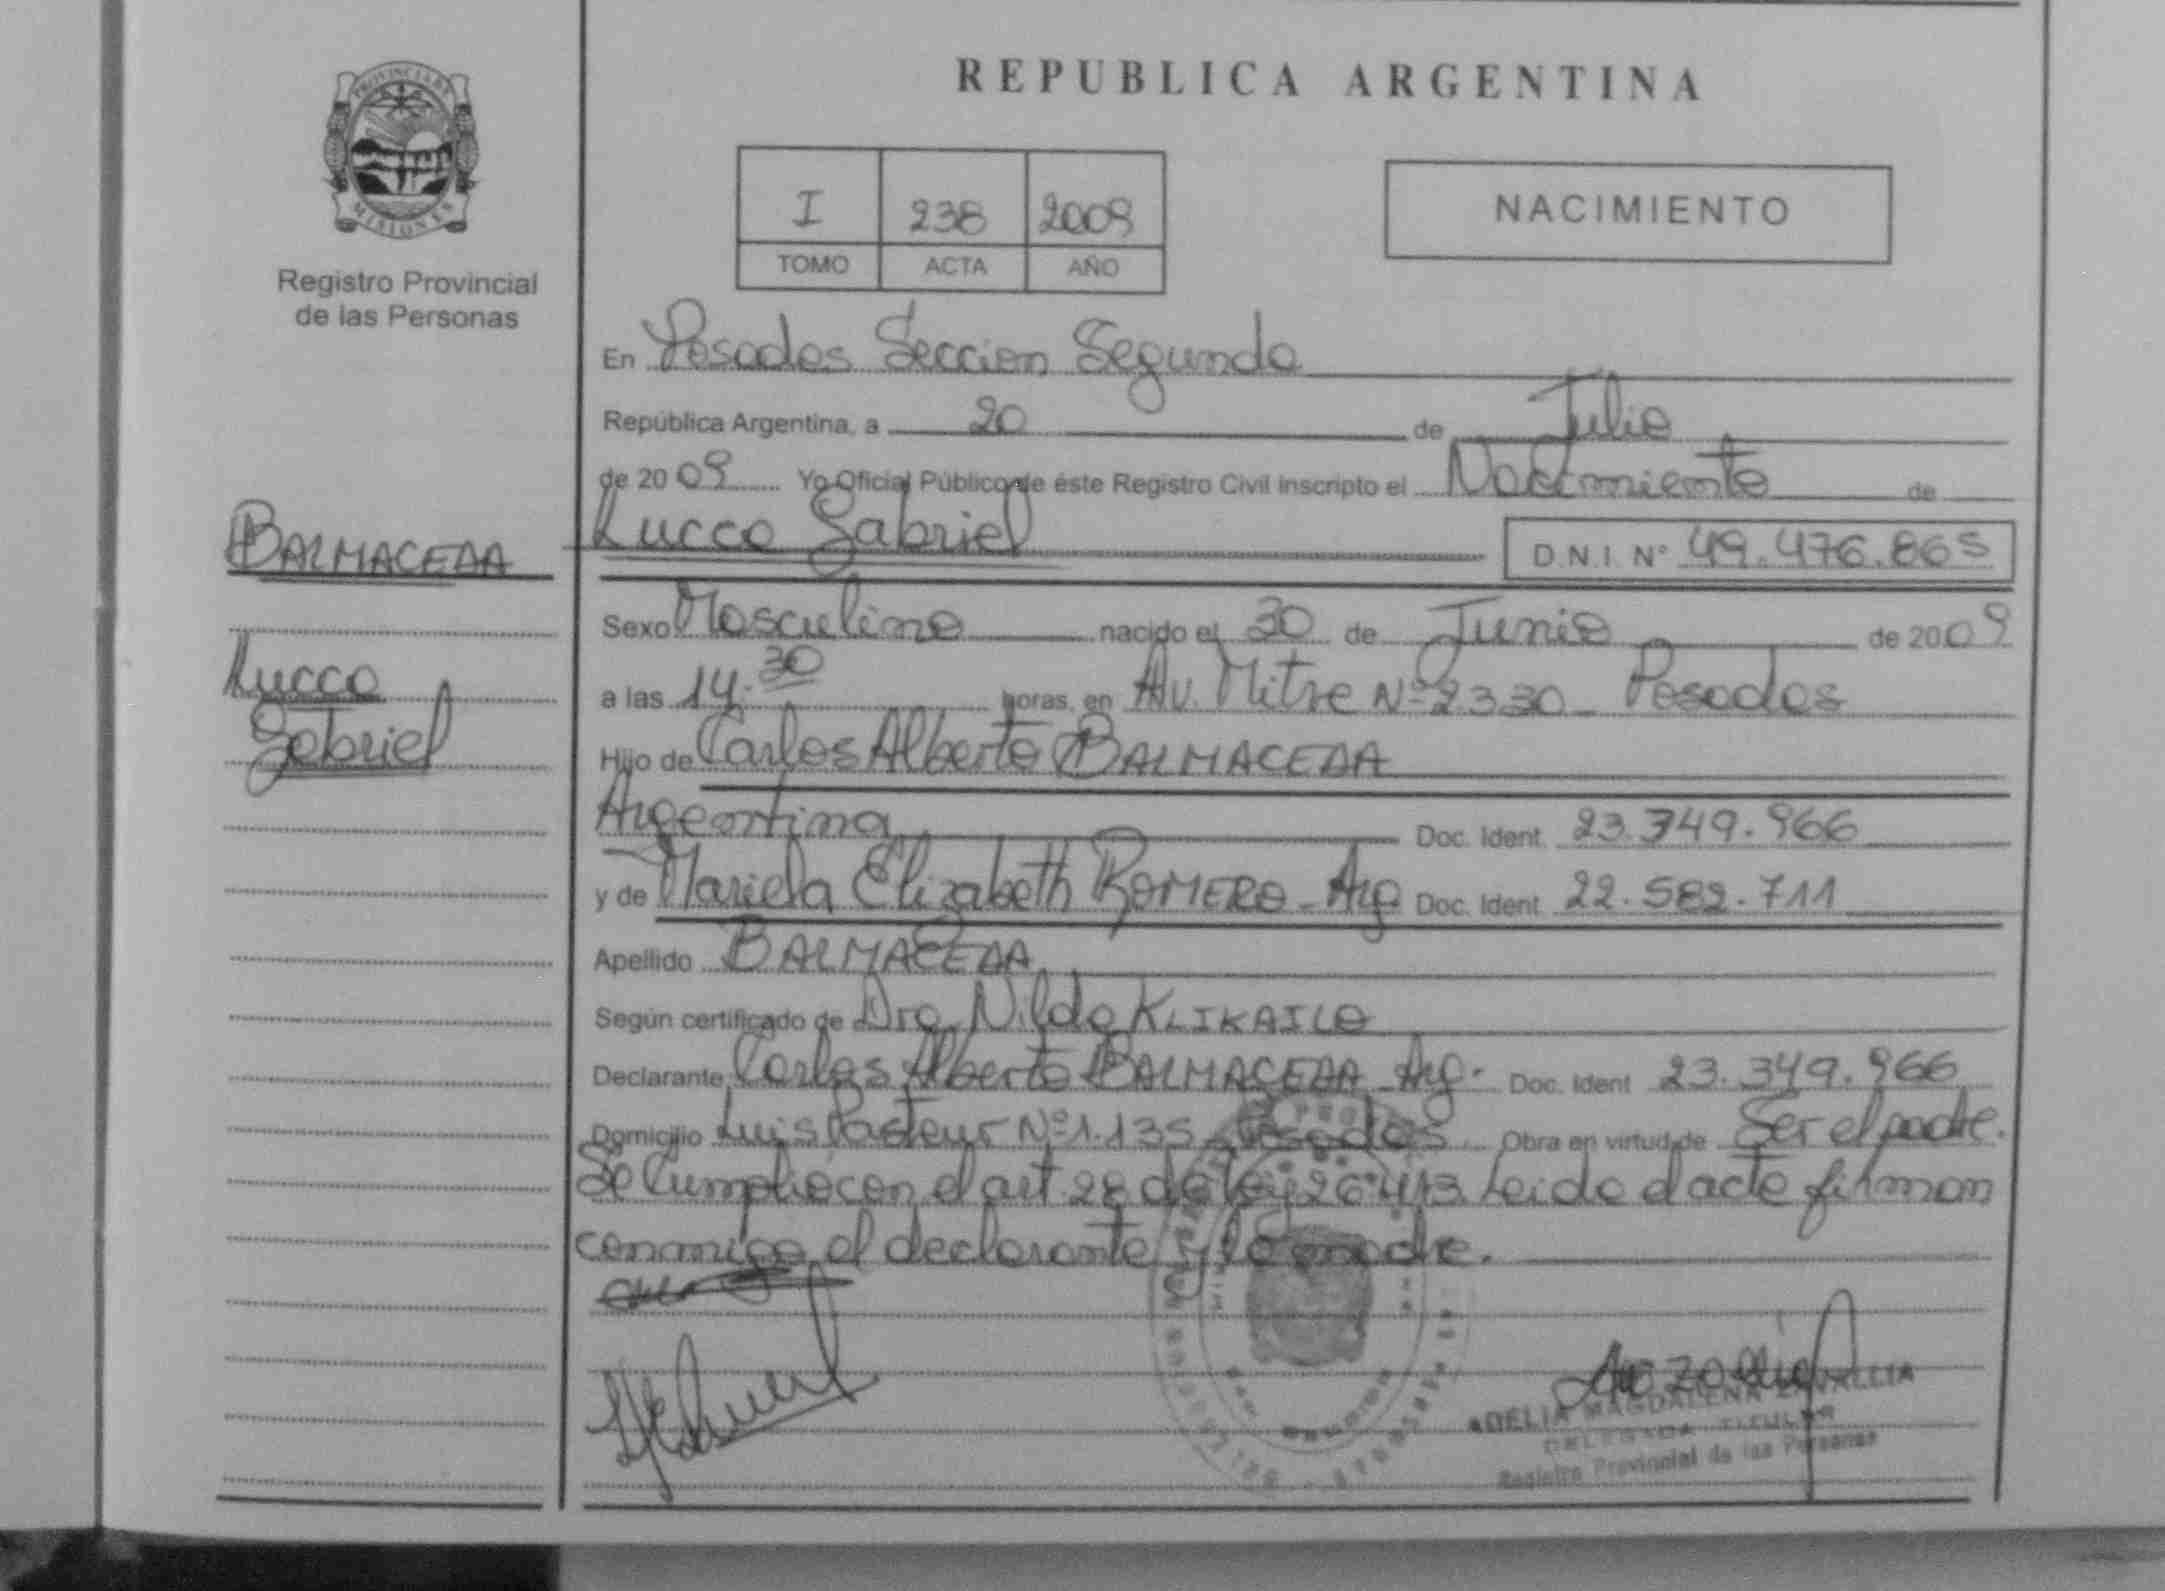 REPUBLICA ARGENTINA
PROVINCIA DE
MISIONES
Registro Provincial
de las Personas
I 238 2009
TOMO ACTA AÑO
NACIMIENTO
En Posadas Seccion Segunda
República Argentina, a 20 de Julio
de 2009 Yo Oficial Público de éste Registro Civil inscripto el Nacimiento de
BALMACEDA
Lucca Gabriel D.N.I. N° 49.476.865
Sexo Masculino nacido el 30 de Junio de 2009
Lucca
Gabriel
a las 14.30 horas, en Av. Mitre Nº 2330 - Posadas
Hijo de Carlos Alberto BALMACEDA
Argentina Doc. Ident. 23.349.966
y de Mariela Elizabeth ROMERO - Arg Doc. Ident 22.582.711
Apellido BALMACEDA
Según certificado de Dra. Nilda KLIKAILO
Declarante Carlos Alberto BALMACEDA - Arg. Doc. Ident 23.349.966
Domicilio Luis Pasteur Nº 1.135 - Posadas Obra en virtud de Ser el padre.
Se Cumplio con el art. 28 de Ley 26.413 Leida el acta firman
conmigo el declarante y la madre.
ADELIA MAGDALENA ZAVALLIA
DELEGADA TITULAR
Registro Provincial de las Personas